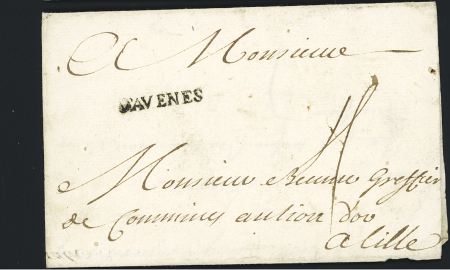 A Monsieur
D'AVENES
Monsieur Greffier
de Commines au lion d'or
a Lille